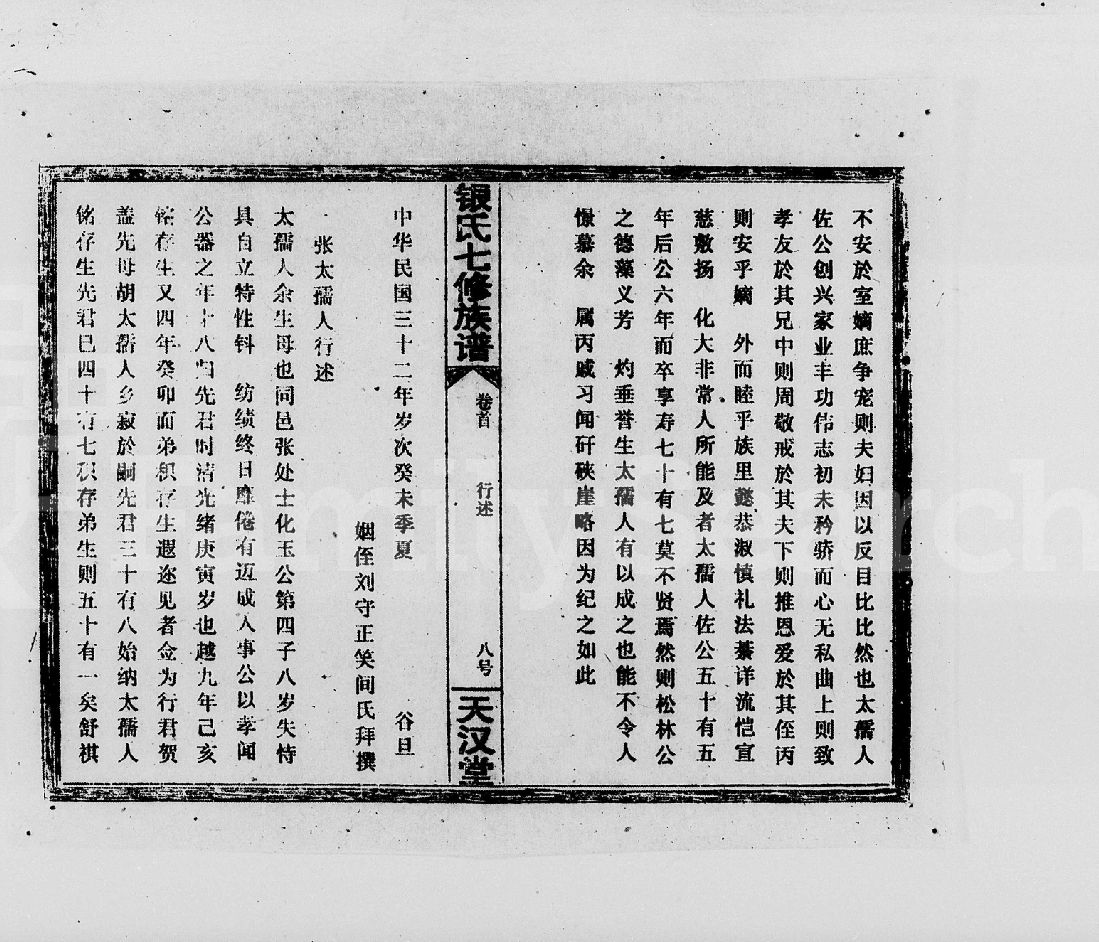 不安於室嫡庶争宠则夫妇因以反目比比然也太孺人
佐公创兴家业丰功伟志初未矜骄而心无私曲上则致
孝友於其兄中则周敬戒於其夫下则推恩爱於其侄丙
则安乎嫡 外而睦乎族里懿恭淑慎礼法綦详流恺宣
慈敷扬 化大非常人所能及者太孺人佐公五十有五
年后公六年而卒享寿七十有七莫不贤焉然则松林公
之德藻义芳 灼垂誉生太孺人有以成之也能不令人
憬慕余 属丙戚习闻矸硖崖略因为纪之如此
银氏七修族谱
卷首
行述
八号
天汉堂
中华民国三十二年岁次癸未季夏 谷旦
姻侄刘守正笑间氏拜撰
张太孺人行述
太孺人余生母也同邑张处士化玉公第四子八岁失恃
具自立特性钭 纺绩终日靡倦有迈成人事公以孝闻
公器之年十八归先君时清光绪庚寅岁也越九年己亥
存生又四年癸卯而弟积存生遐迩见者佥为行君贺
盖先母胡太孺人乡寂於嗣先君三十有八始纳太孺人
铭存生先君已四十有七积存弟生则五十有一矣舒祺